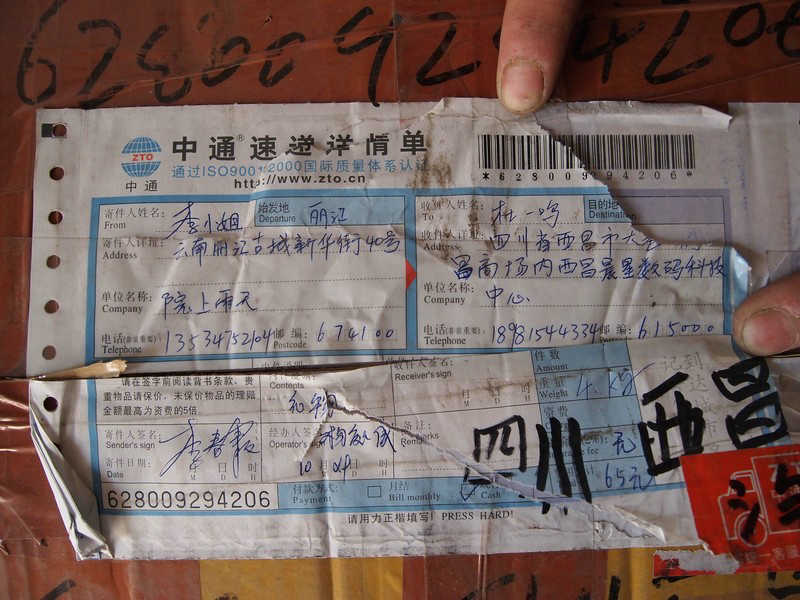 628009294206
ZTO
中通
中通®速递详情单
通过ISO9001:2000国际质量体系认证
http://www.zto.cn
*628009294206*
寄件人姓名:
From
李小姐
始发地
Departure
丽江
收件人姓名:
To
杜一鸣
目的地
Destination
寄件人详址:
Address
云南丽江古城新华街40号
收件人详址:
Address
四川省西昌市大
昌商场内西昌晨星数码科技
单位名称:
Company
院上雨天
单位名称:
Company
中心
电话(非常重要):
Telephone
13534752104
邮编:
Postcode
674100
电话(非常重要):
Telephone
18981544334
邮编:
Postcode
615000
请在签字前阅读背书条款,贵
重物品请保价,未保价物品的理赔
金额最高为资费的5倍
Contents
收件人签名:
Receiver's sign
件数
Amount
重量
Weight
寄件人签名:
Sender's sign
李春霞
经办人签名:
Operator's sign
备注:
Remarks
资费
元
寄件日期:
Date
年
M
月
D
日
H
时
四川
西昌
65元
628009294206
付款方式:
Payment
月结
Bill monthly
Cash
请用力正楷填写! PRESS HARD!